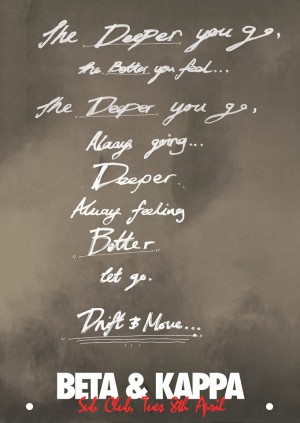 The Deeper you go,
the Better you feel...
The Deeper you go,
Always going...
Deeper
Always feeling
Better
let go.
Drift & Move...
BETA & KAPPA
Sub Club, Tues 8th April